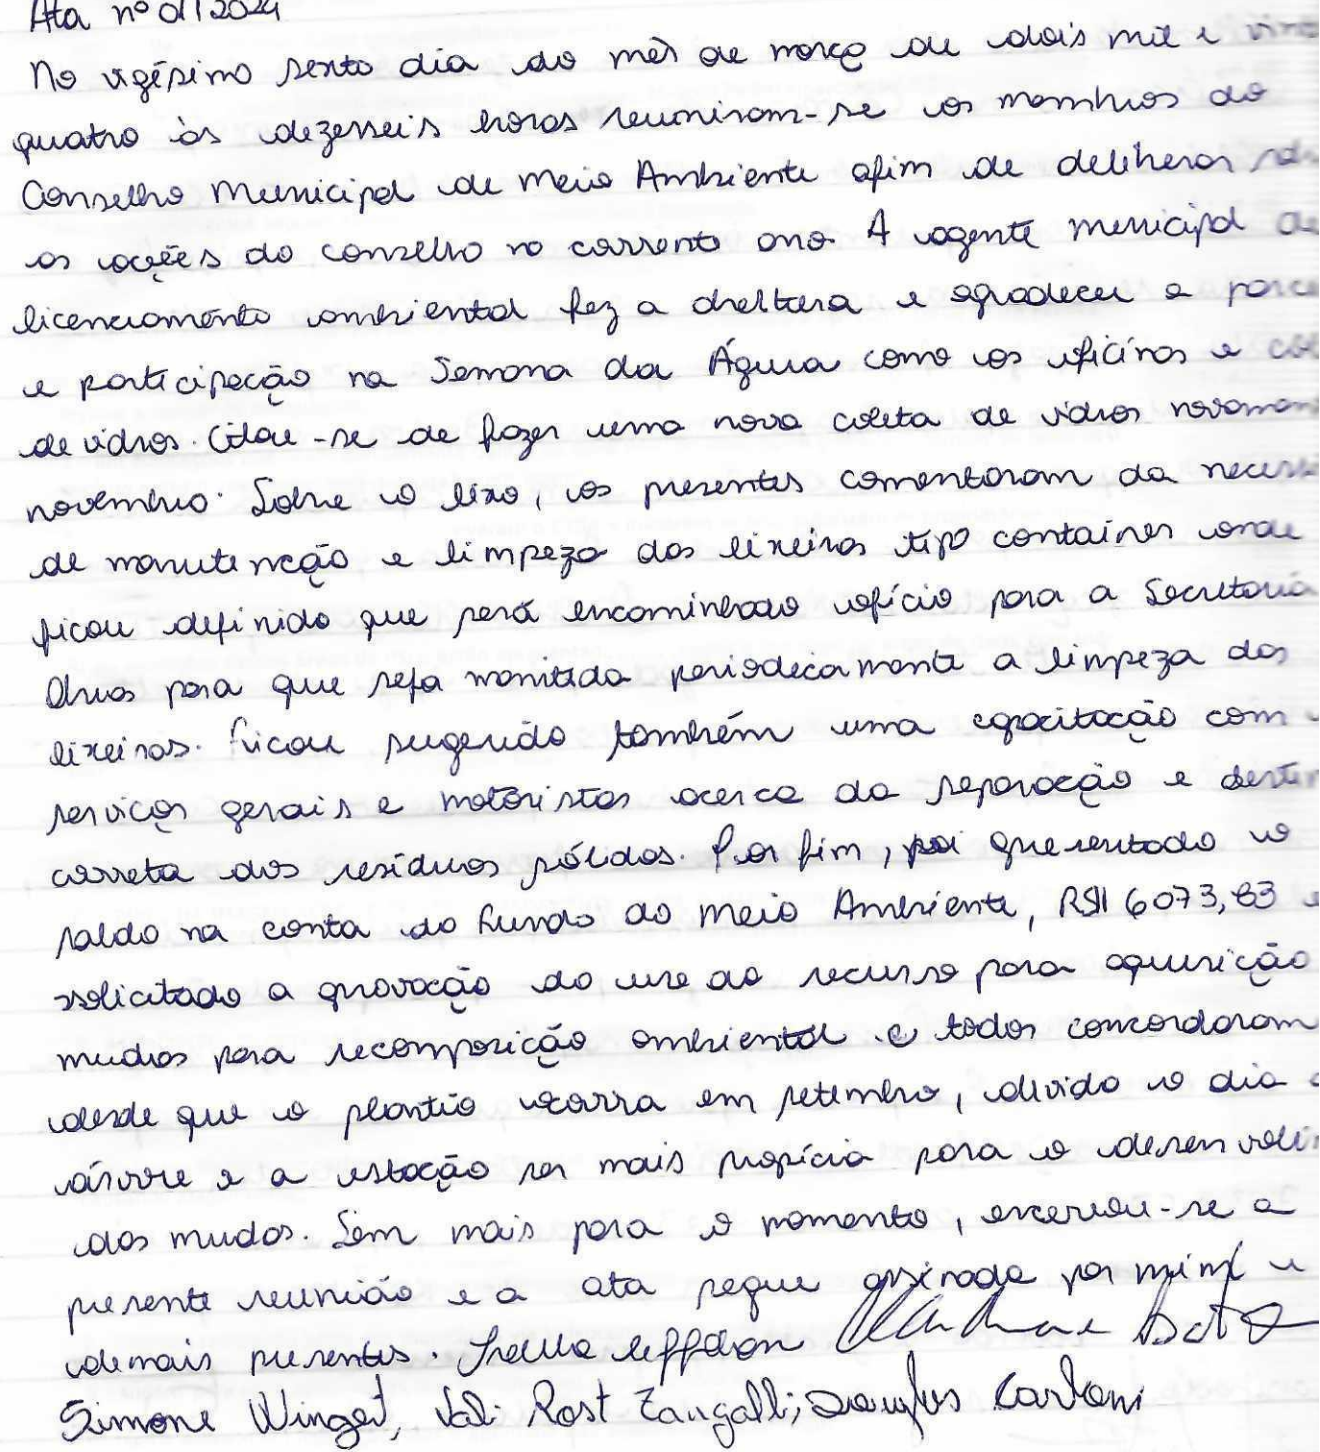 Ata nº 01/2024
No vigésimo sexto dia do mês de março de dois mil e
quatro às dezesseis horas reuniram-se os membros do
Conselho Municipal de Meio Ambiente afim de deliberar
as ações do conselho no corrente ano. A agente municipal de
licenciamento ambiental fez a abertura e agradeceu a
e participação na Semana da Água como as oficinas e
de vidros. Citou-se de fazer uma nova coleta de vidros
novembro. Sobre o lixo, os presentes comentaram da
de manutenção e limpeza das lixeiras tipo container onde
ficou definido que será encaminhado ofício para a Secretaria
Obras para que seja mantida periodicamente a limpeza das
lixeiras. Ficou sugerido também uma capacitação com
serviços gerais e motoristas acerca da separação e
correta dos resíduos sólidos. Por fim, foi apresentado o
saldo na conta do Fundo do Meio Ambiente, 6073,83
solicitado a aprovação do uso do recurso para aquisição
mudas para recomposição ambiental e todos concordaram
desde que o plantio ocorra em setembro, devido o dia
árvore e a estação ser mais propícia para o
das mudas. Sem mais para o momento, encerrou-se a
presente reunião e a ata segue assinada por mim e
demais presentes.
Simone Winget, Rost Zangalli; Douglas Carboni